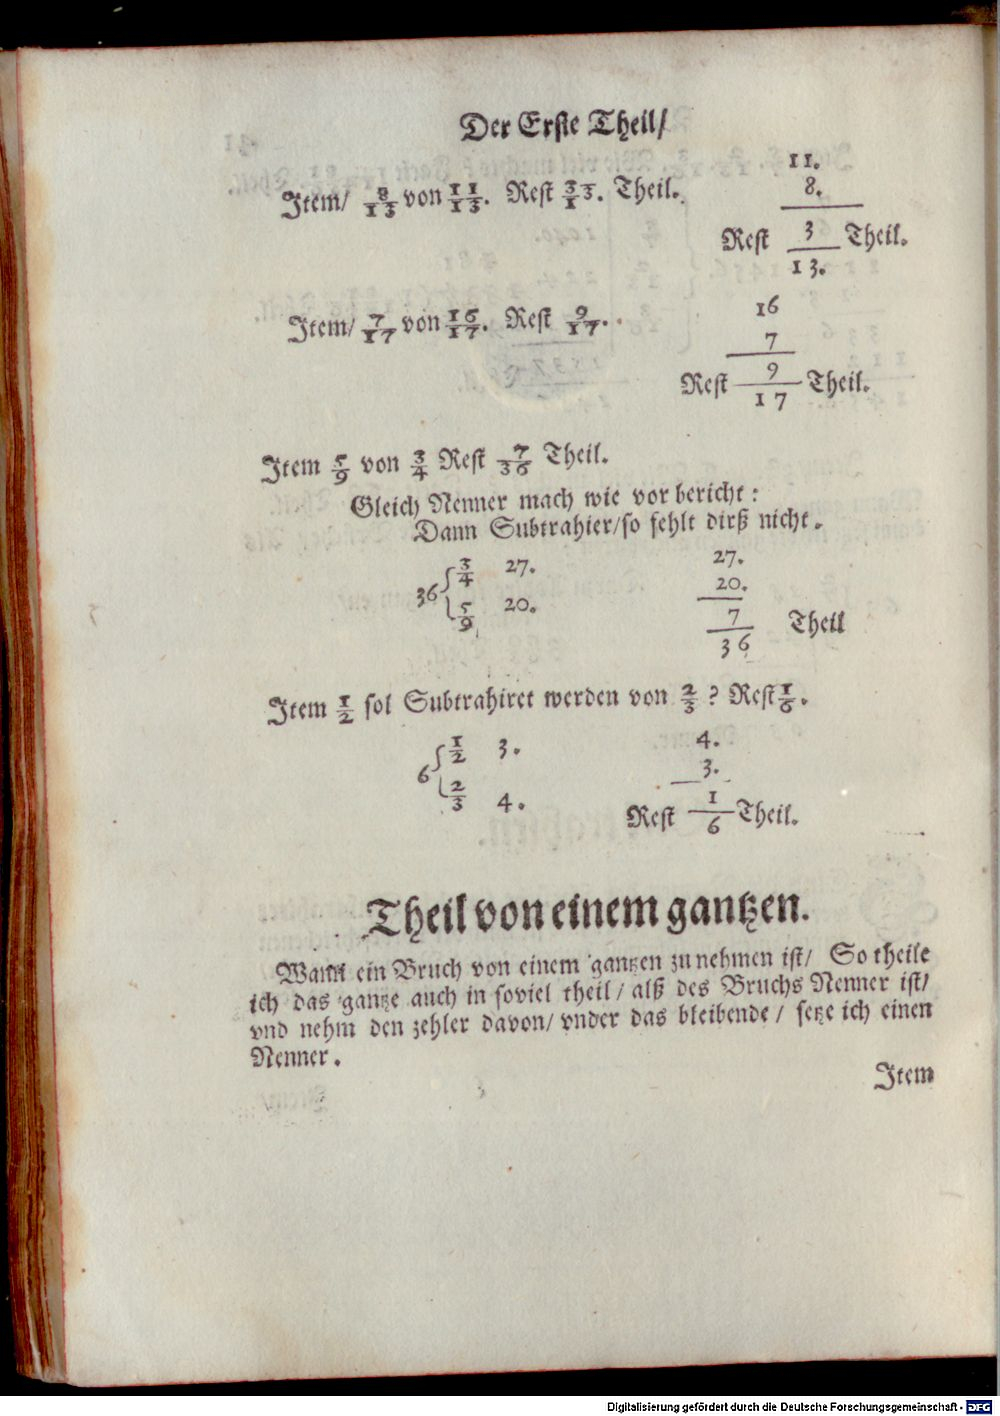 Der Erste Theil/
Item/ 8/13 von 11/13. Rest 3/13. Theil.
11.
8.
Rest 3/13. Theil.
Item/ 7/17 von 16/17. Rest 9/17.
16
7
Rest 9/17 Theil.
Item 5/9 von 3/4 Rest 7/36 Theil.
Gleich Nenner mach wie vor bericht:
Dann Subtrahier/so fehlt dirß nicht.
36 { 3/4 27.
5/9 20.
27.
20.
7/36 Theil
Item 1/2 sol Subtrahiret werden von 2/3 ? Rest 1/6.
6 { 1/2 3.
2/3 4.
4.
3.
Rest 1/6 Theil.
Theil von einem gantzen.
Wann ein Bruch von einem gantzen zu nehmen ist/ So theile
ich das gantze auch in soviel theil/ alß des Bruchs Nenner ist/
vnd nehm den zehler davon/ vnder das bleibende/ setze ich einen
Nenner.
Item
Digitalisierung gefördert durch die Deutsche Forschungsgemeinschaft - DFG